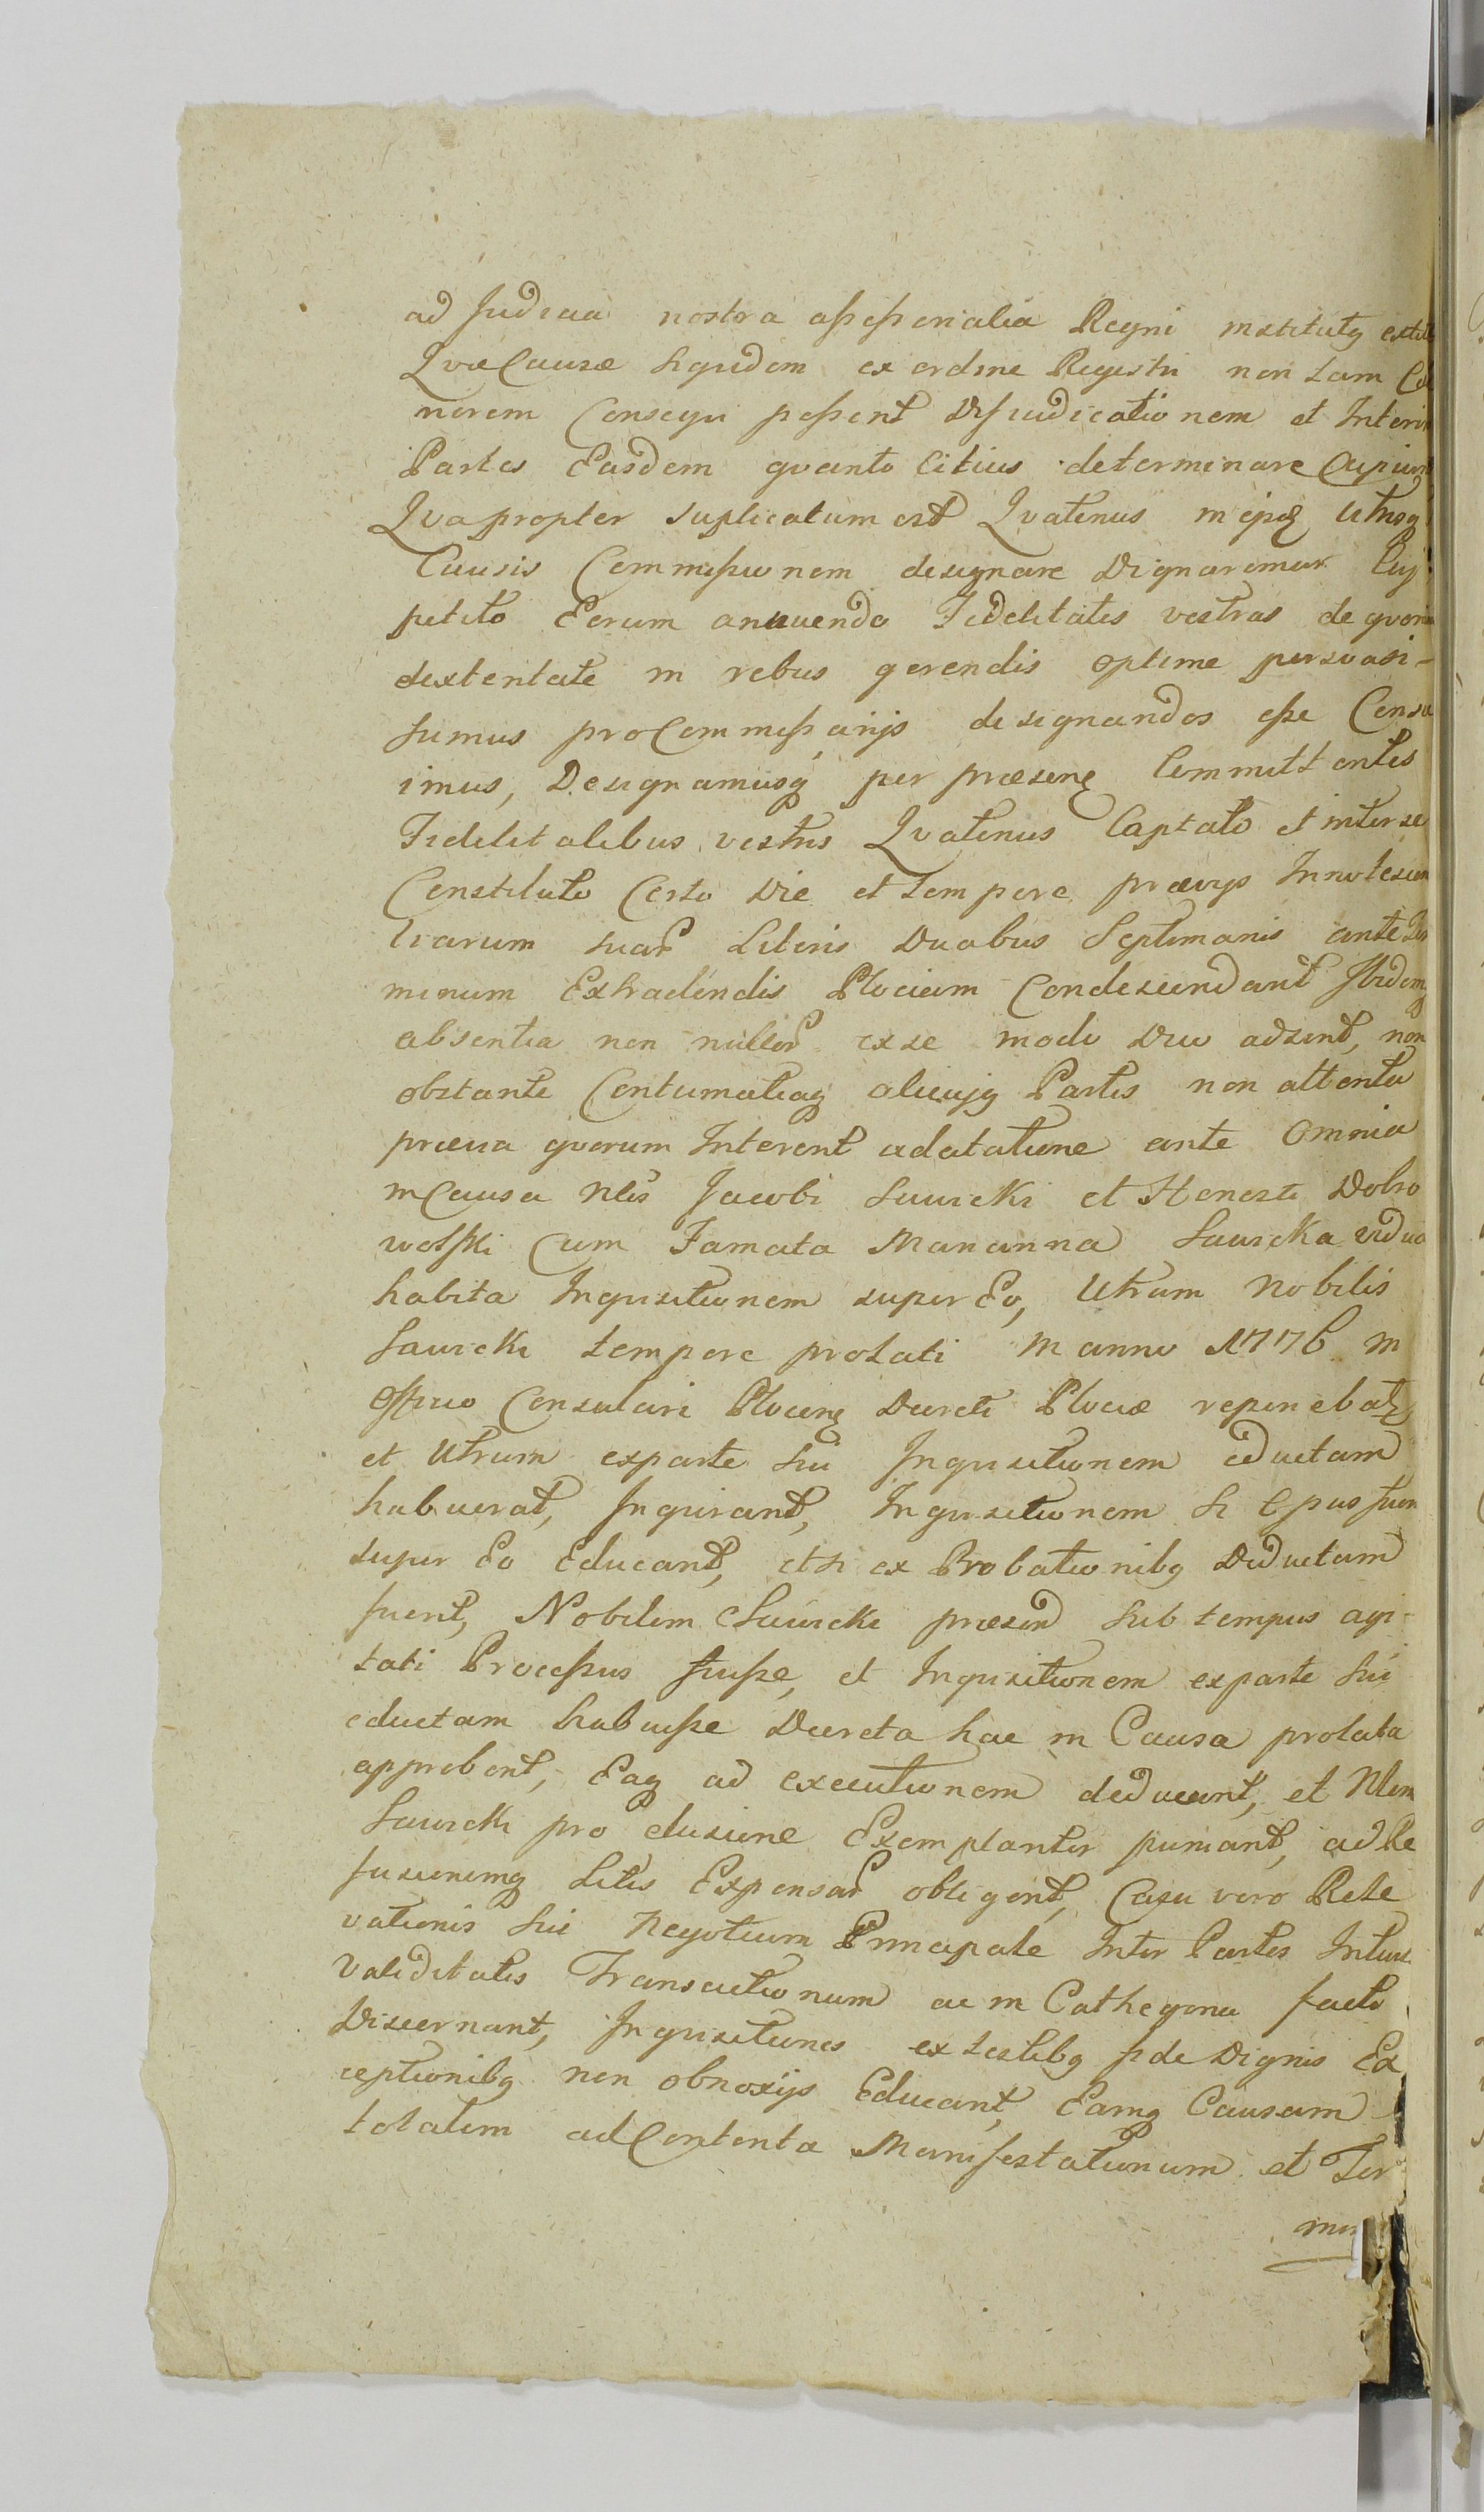 ad Judicia nostra assessorialia Regni institutę
Qvæ Causæ siqvidem ex ordine Regestri non tam
norem Consequi possent Disjudicationem et Interim
Partes Easdem qvanto Citius determinare Cupiunt
Qvapropter suplicatum est Qvatenus in ejsd Utrisq
Causis Commissionem designare Dignaremur Cuj
petito Eorum annuendo Fidelitates vestras de qvorum
dexteritate in rebus gerendis optime persvasi-
sumus pro Commissarijs designandos esse Censu
imus, Designamusq per præsenę Committentes
Fidelitatibus vestris Qvatenus Captato et inter se
Constituto Certo Die et tempore prævijs Innotescen
tiarum suar Literis Duabus Septimanis ante Ter
minum Extradendis Plociam Condescendant Ibidemq
absentia non nullor ex se modo Duo adsint, non
obstante Contumaciaq alicujq Partis non attenta
prævia qvorum Intererit adcitatione ante Omnia
in Causa Nlis Jacobi Sawicki et Honesti Dobro
wolski Cum Famata Marianna Sawicka vidua
habita Inqvisitionem super Eo, Utrum Nobilis
Sawicki tempore prolati in anno 1776 in
Officio Consulari Plocenę Decreti Plociæ reperiebatz
et Utrum ex parte sui Inqvisitionem eductam
habuerat, Inqvirant, Inqvisitionem si Opus fuer
super Eo Educant, et si ex Probationibq Deductam
fuerit, Nobilem Sawicki præsen sub tempus agi-
tati Processus fuisse, et Inqvisitionem ex parte sui
eductam habuisse Decreta hac in Causa prolata
approbent, Eaq ad executionem deducant, et Nlem
Sawicki pro elusione Exemplariter puniant, ad Re
fusionemq Litis Expensar obligent, Casu vero Rele
vationis sui Negotium Principale Inter Partes Intuitu
Validitatis Transactionum ac in Cathegoria facti
Discernant, Inqvisitiones ex testibq fide Dignis Ex
ceptionibq non obnoxijs Educant, Eamq Causam
totalem ad Contenta Manifestationum et Ter
min